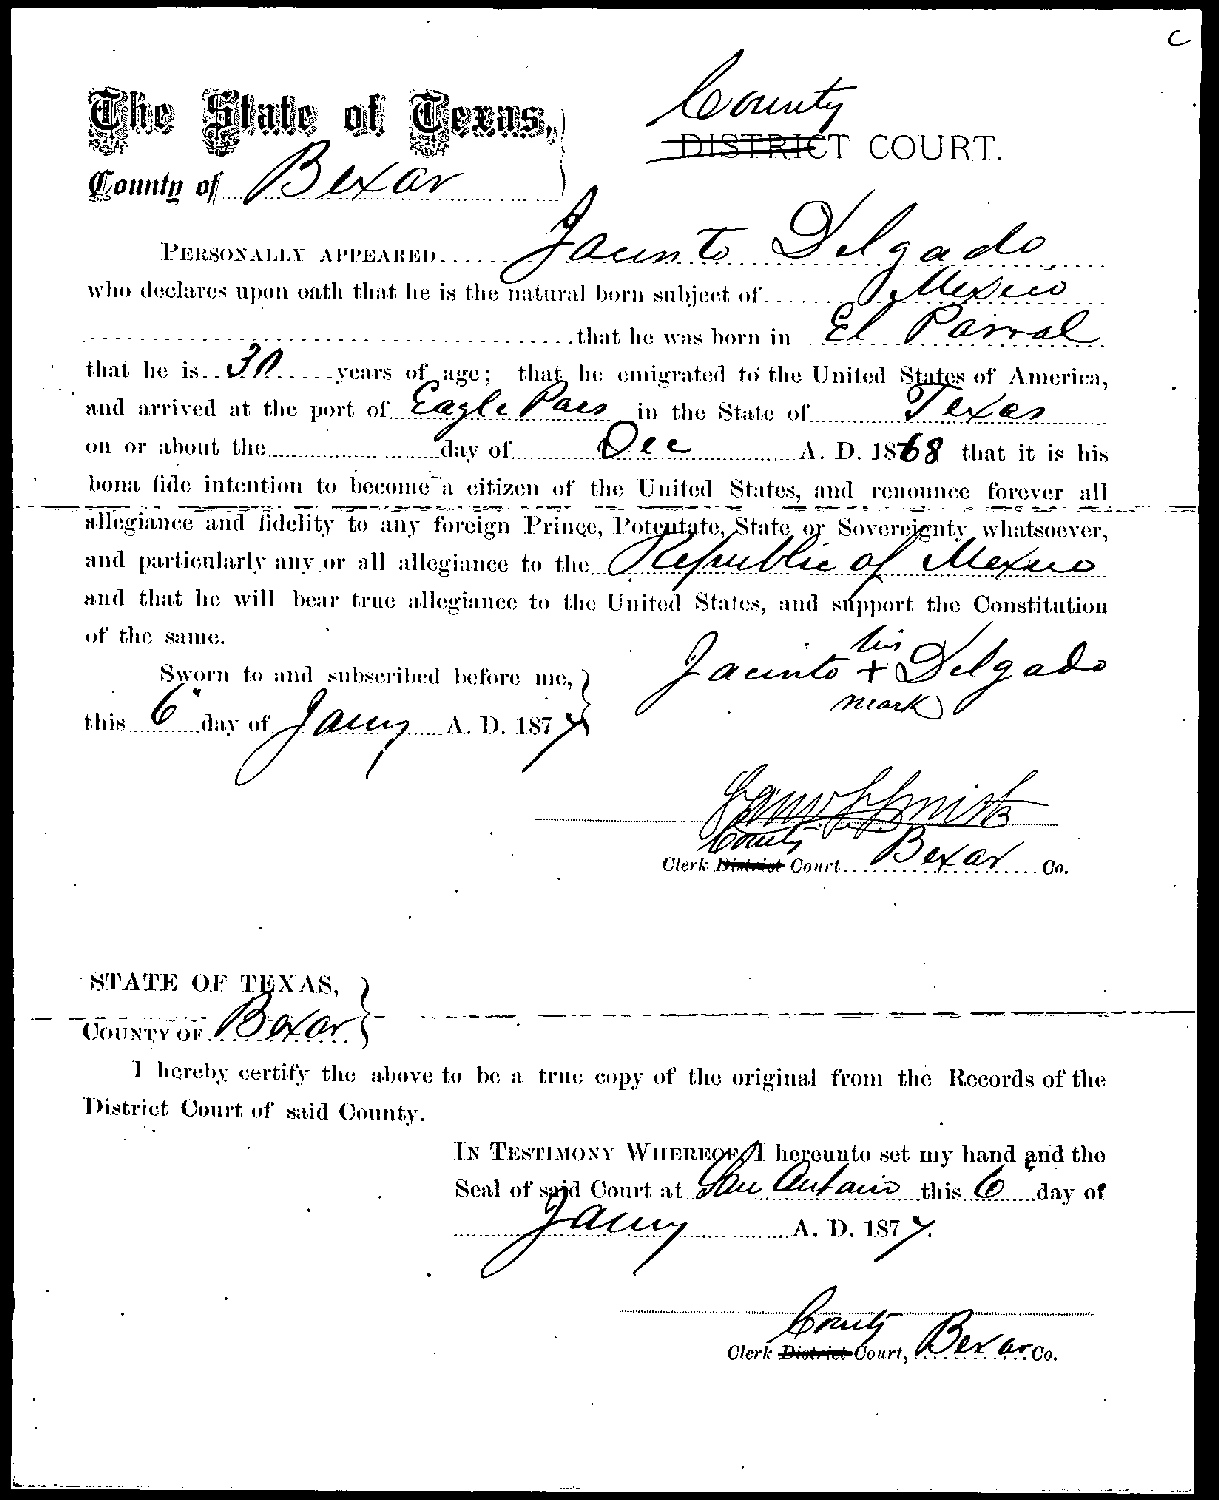 c
The State of Texas,
County of Bexar
County
DISTRICT COURT.
PERSONALLY APPEARED Jacinto Delgado
who declares upon oath that he is the natural born subject of Mexico
that he was born in El Parral
that he is 30 years of age; that he emigrated to the United States of America,
and arrived at the port of Eagle Pass in the State of Texas
on or about the day of Dec A. D. 1868 that it is his
bona fide intention to become a citizen of the United States, and renounce forever all
allegiance and fidelity to any foreign Prince, Potentate, State or Sovereignty whatsoever,
and particularly any or all allegiance to the Republic of Mexico
and that he will bear true allegiance to the United States, and support the Constitution
of the same.
his
Jacinto + Delgado
mark
Sworn to and subscribed before me,
this 6" day of Jany A. D. 1877
Smith
County
Clerk District Court Bexar Co.
STATE OF TEXAS,
COUNTY OF Bexar
I hereby certify the above to be a true copy of the original from the Records of the
District Court of said County.
IN TESTIMONY WHEREOF, I hereunto set my hand and the
Seal of said Court at San Antonio this 6" day of
Jany A. D. 1877.
County
Clerk District Court, Bexar Co.